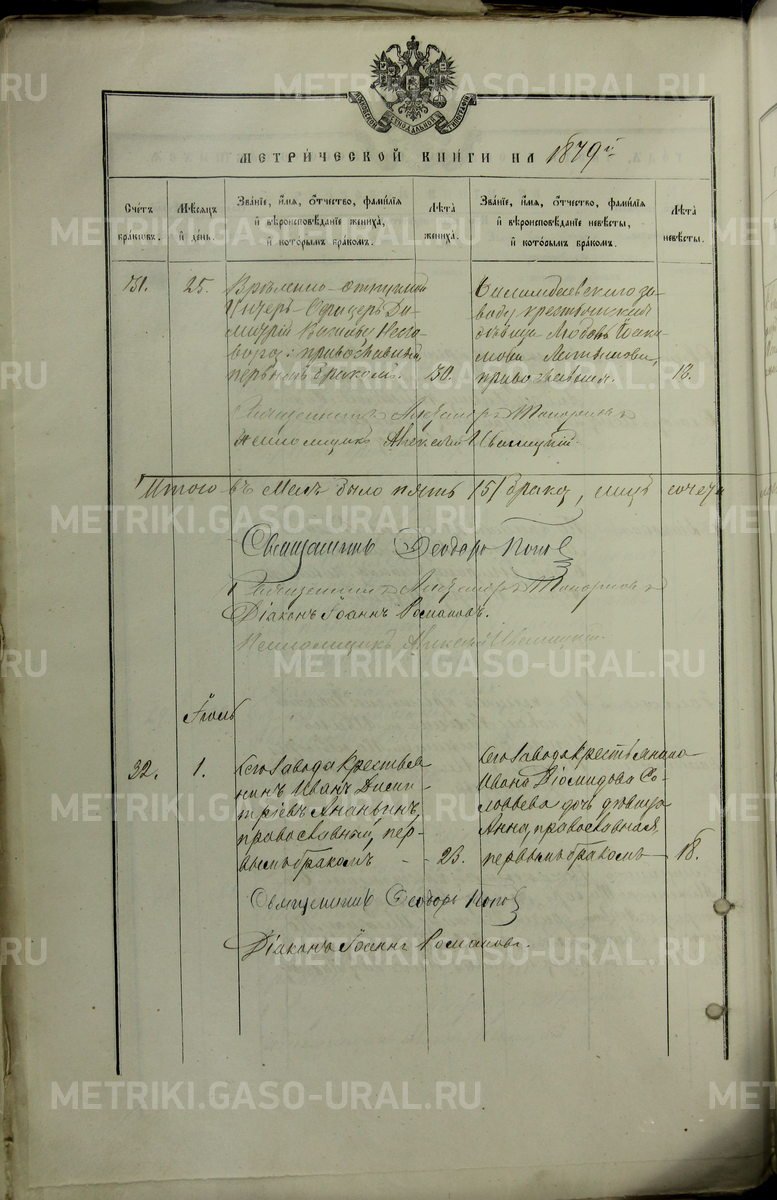 МОСКОВСКОЙ СИНОДАЛЬНОЙ ТИПОГРАФІИ
МЕТРИ́ЧЕСКОЙ КНИ́ГИ НА 1879 г.
Счетъ бра́кѡвъ.
Мѣ́сѧцъ и҆ де́нь.
Зва́нїе, и҆́мѧ, ѻ҆́тчество, фами́лїѧ
и҆ вѣроисповѣ́данїе жениха̀,
и҆ кото́рымъ бра́комъ.
Лѣ́та жениха̀.
Зва́нїе, и҆́мѧ, ѻ҆́тчество, фами́лїѧ
и҆ вѣроисповѣ́данїе невѣ́сты,
и҆ кото́рымъ бра́комъ.
Лѣ́та невѣ́сты.
31.
25.
Временно-отпускной
Унтеръ-Офицеръ Ди-
митрій Васильевъ
православный,
первымъ бракомъ.
30.
Билимбаевскаго за-
вода крестьянская
дѣвица Любовь
православная.
18.
Священникъ Александръ Топорковъ
Псаломщикъ Алексѣй
Итого въ Маѣ было пять /5/ брака, лицъ сочета
Священникъ Ѳеодоръ Поповъ
Священникъ Александръ Топорковъ
Діаконъ Іоаннъ Романовъ.
Псаломщикъ Алексѣй
Іюль
32.
1.
Сего Завода Крестья
нинъ Иванъ Дими-
тріевъ Ананьинъ,
православный, пер-
вымъ бракомъ
23.
Сего Завода Крестьянина
Ивана Діомидова Со-
ловьева дочь дѣвица
Анна, православная,
первымъ бракомъ
18.
Священникъ Ѳеодоръ Поповъ
Діаконъ Іоаннъ Романовъ.
METRIKI.GASO-URAL.RU